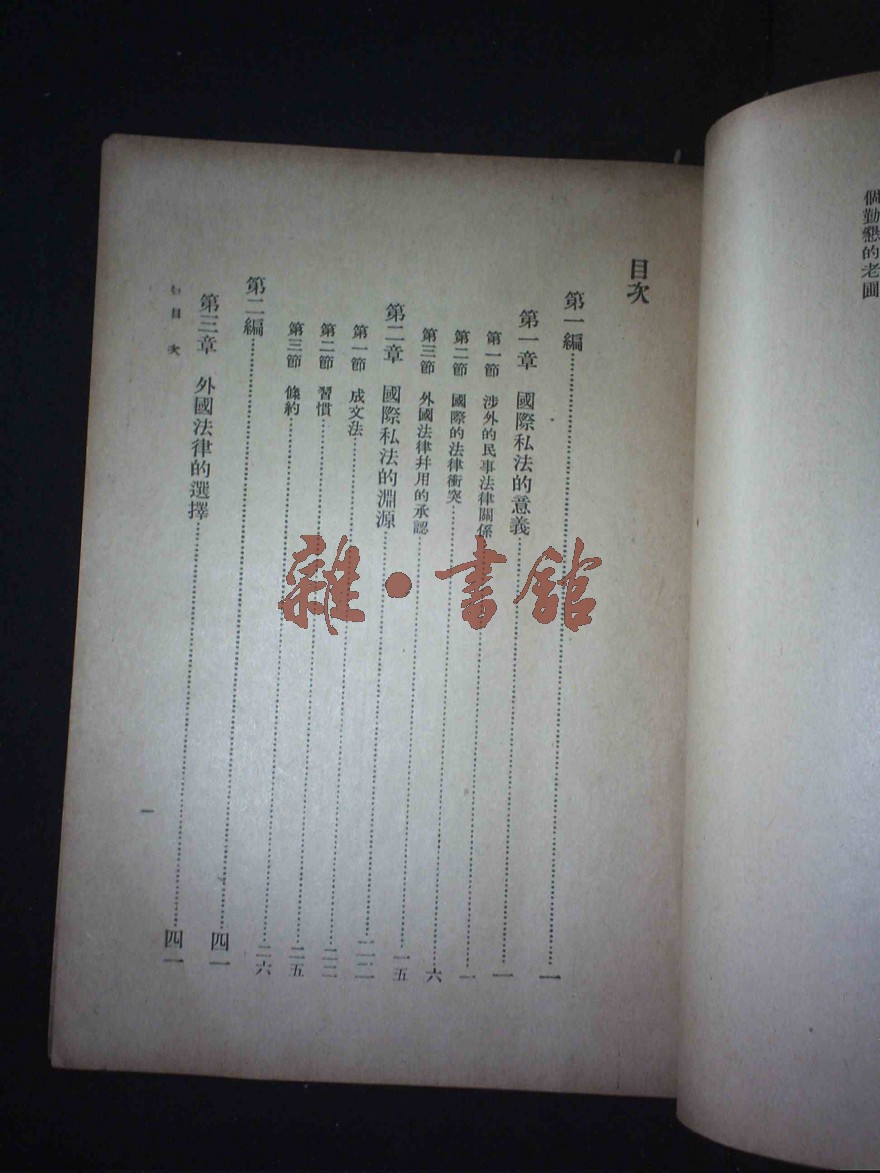 個勤懇的老圃
目次
第一編……一
第一章 國際私法的意義……一
第一節 涉外的民事法律關係……一
第二節 國際的法律衝突……六
第三節 外國法律幷用的承認……一五
第二章 國際私法的淵源……二二
第一節 成文法……二二
第二節 習慣……二五
第三節 條約……二六
第二編……四一
第三章 外國法律的選擇……四一
目次
一
雜·書館